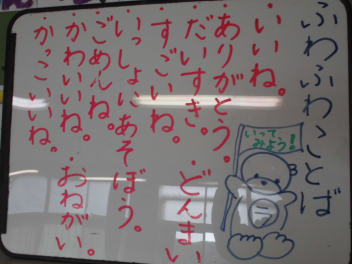 ふわふわことば
いって
みよう!
・いいね。
・ありがとう。
・だいすき。・どんまい
・すごいね。
・いっしょにあそぼう。
・ごめんね。
・かわいいね。・おねがい。
・かっこいいね。